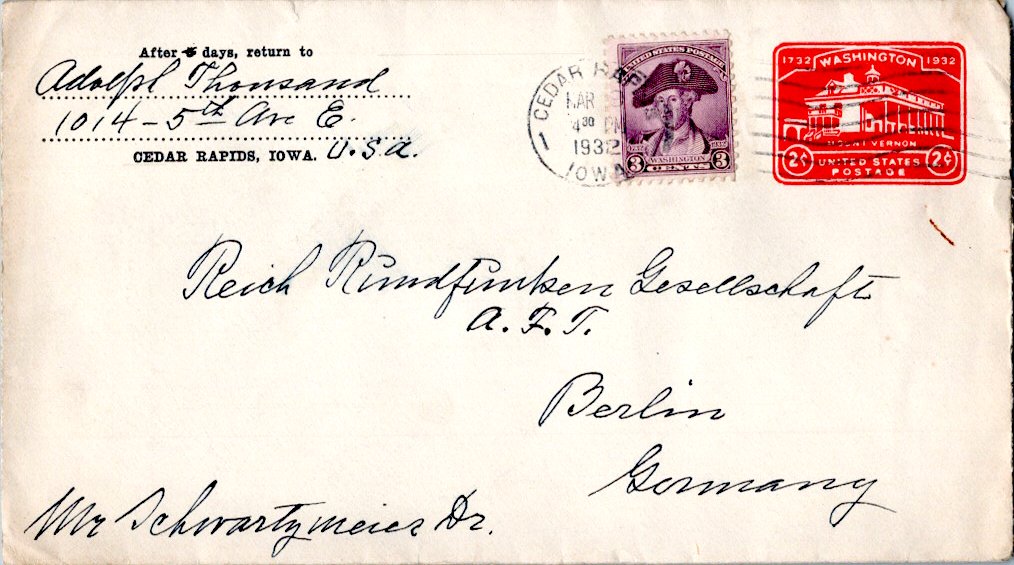 After 5 days, return to
Adolph Thousand
1014 - 5th Ave E.
CEDAR RAPIDS, IOWA. U.S.A.
CEDAR RAPIDS
MAR
4 30 PM
1932
IOWA
UNITED STATES POSTAGE
1732 1932
3 WASHINGTON 3
CENTS
1732 WASHINGTON 1932
MOUNT VERNON
2¢ UNITED STATES 2¢
POSTAGE
Reich Rundfunken Gesellschaft
A. F. T.
Berlin
Germany
Mr Schwartzmeier Dr.